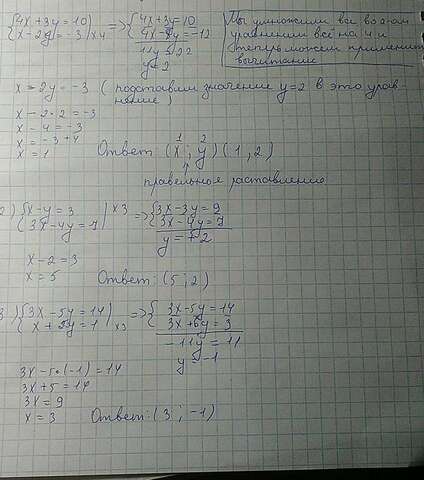 {4x+3y=10 => {4x+3y=10
{x-2y=-3 | x4 {4x-8y=-12
11y=22
y=2
Мы умножили все во втором
уравнении всё на 4 и
теперь можем применить
вычитание
x-2y=-3 (подставим значение y=2 в это урав-
нение)
x-2·2=-3
x-4=-3
x=-3+4
x=1
1 2
Ответ: (x; y) (1, 2)
правельное раставление
2) {x-y=3 | x3 => {3x-3y=9
{3x-4y=7 {3x-4y=7
y=2
x-2=3
x=5
Ответ: (5; 2)
3) {3x-5y=14 => {3x-5y=14
{x+2y=1 | x3 {3x+6y=3
-11y=11
y=-1
3x-5·(-1)=14
3x+5=14
3x=9
x=3
Ответ: (3; -1)